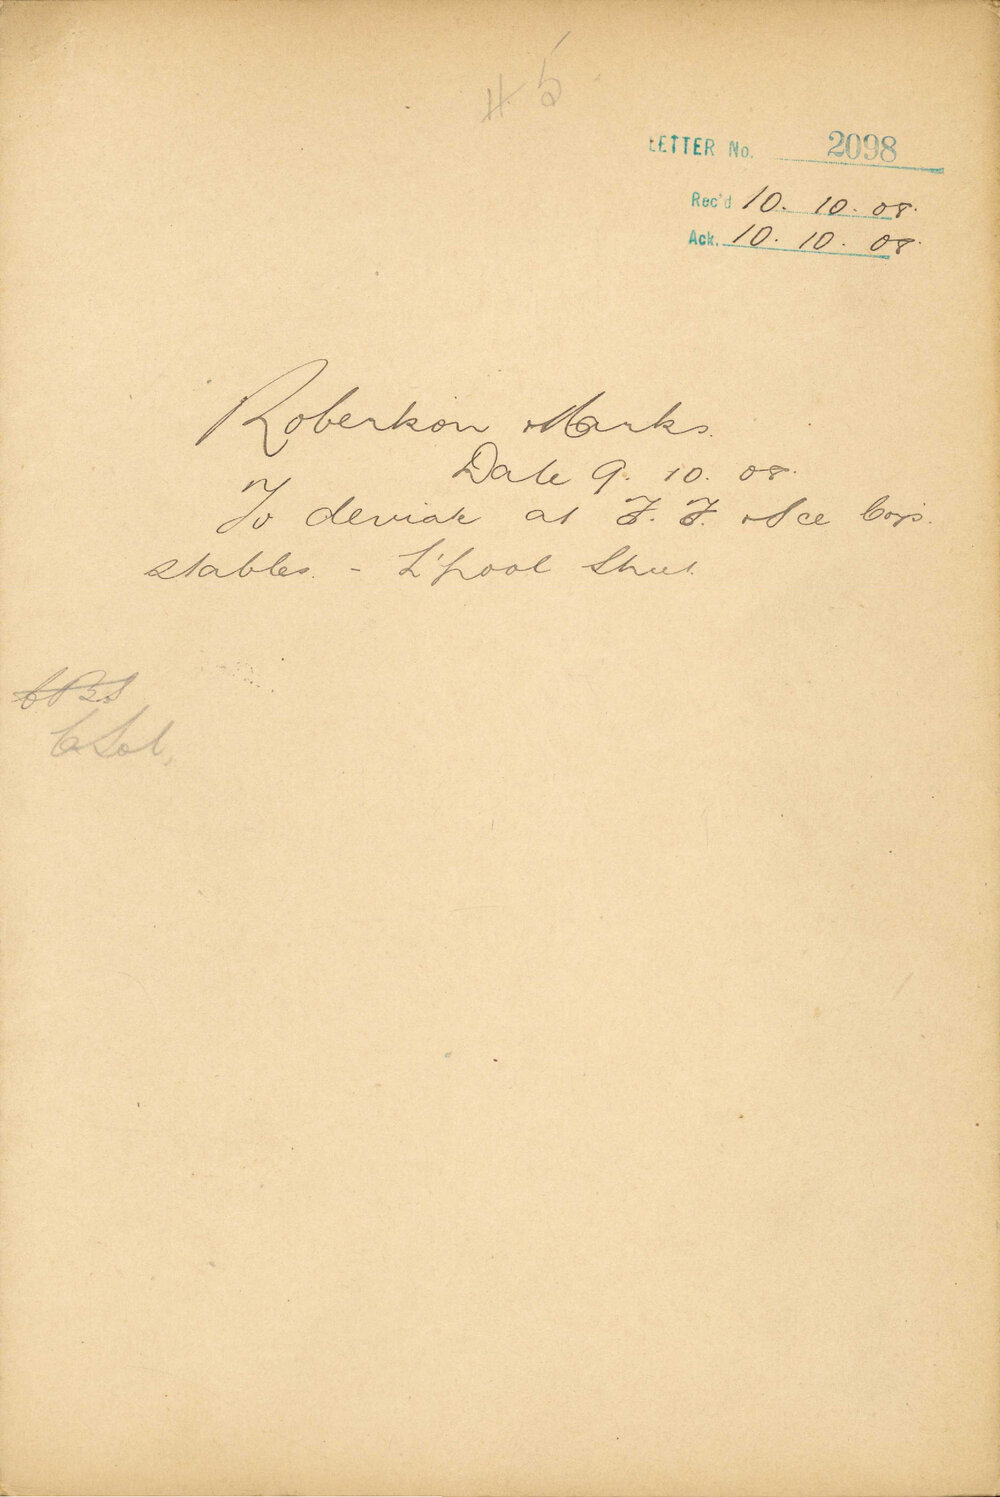 H 5
LETTER No. 2098
Rec'd 10. 10. 08.
Ack. 10. 10. 08.
Robertson & Marks.
Date 9. 10. 08.
To deviate at F. F. & Ice Coy's.
stables. - L'pool Street.